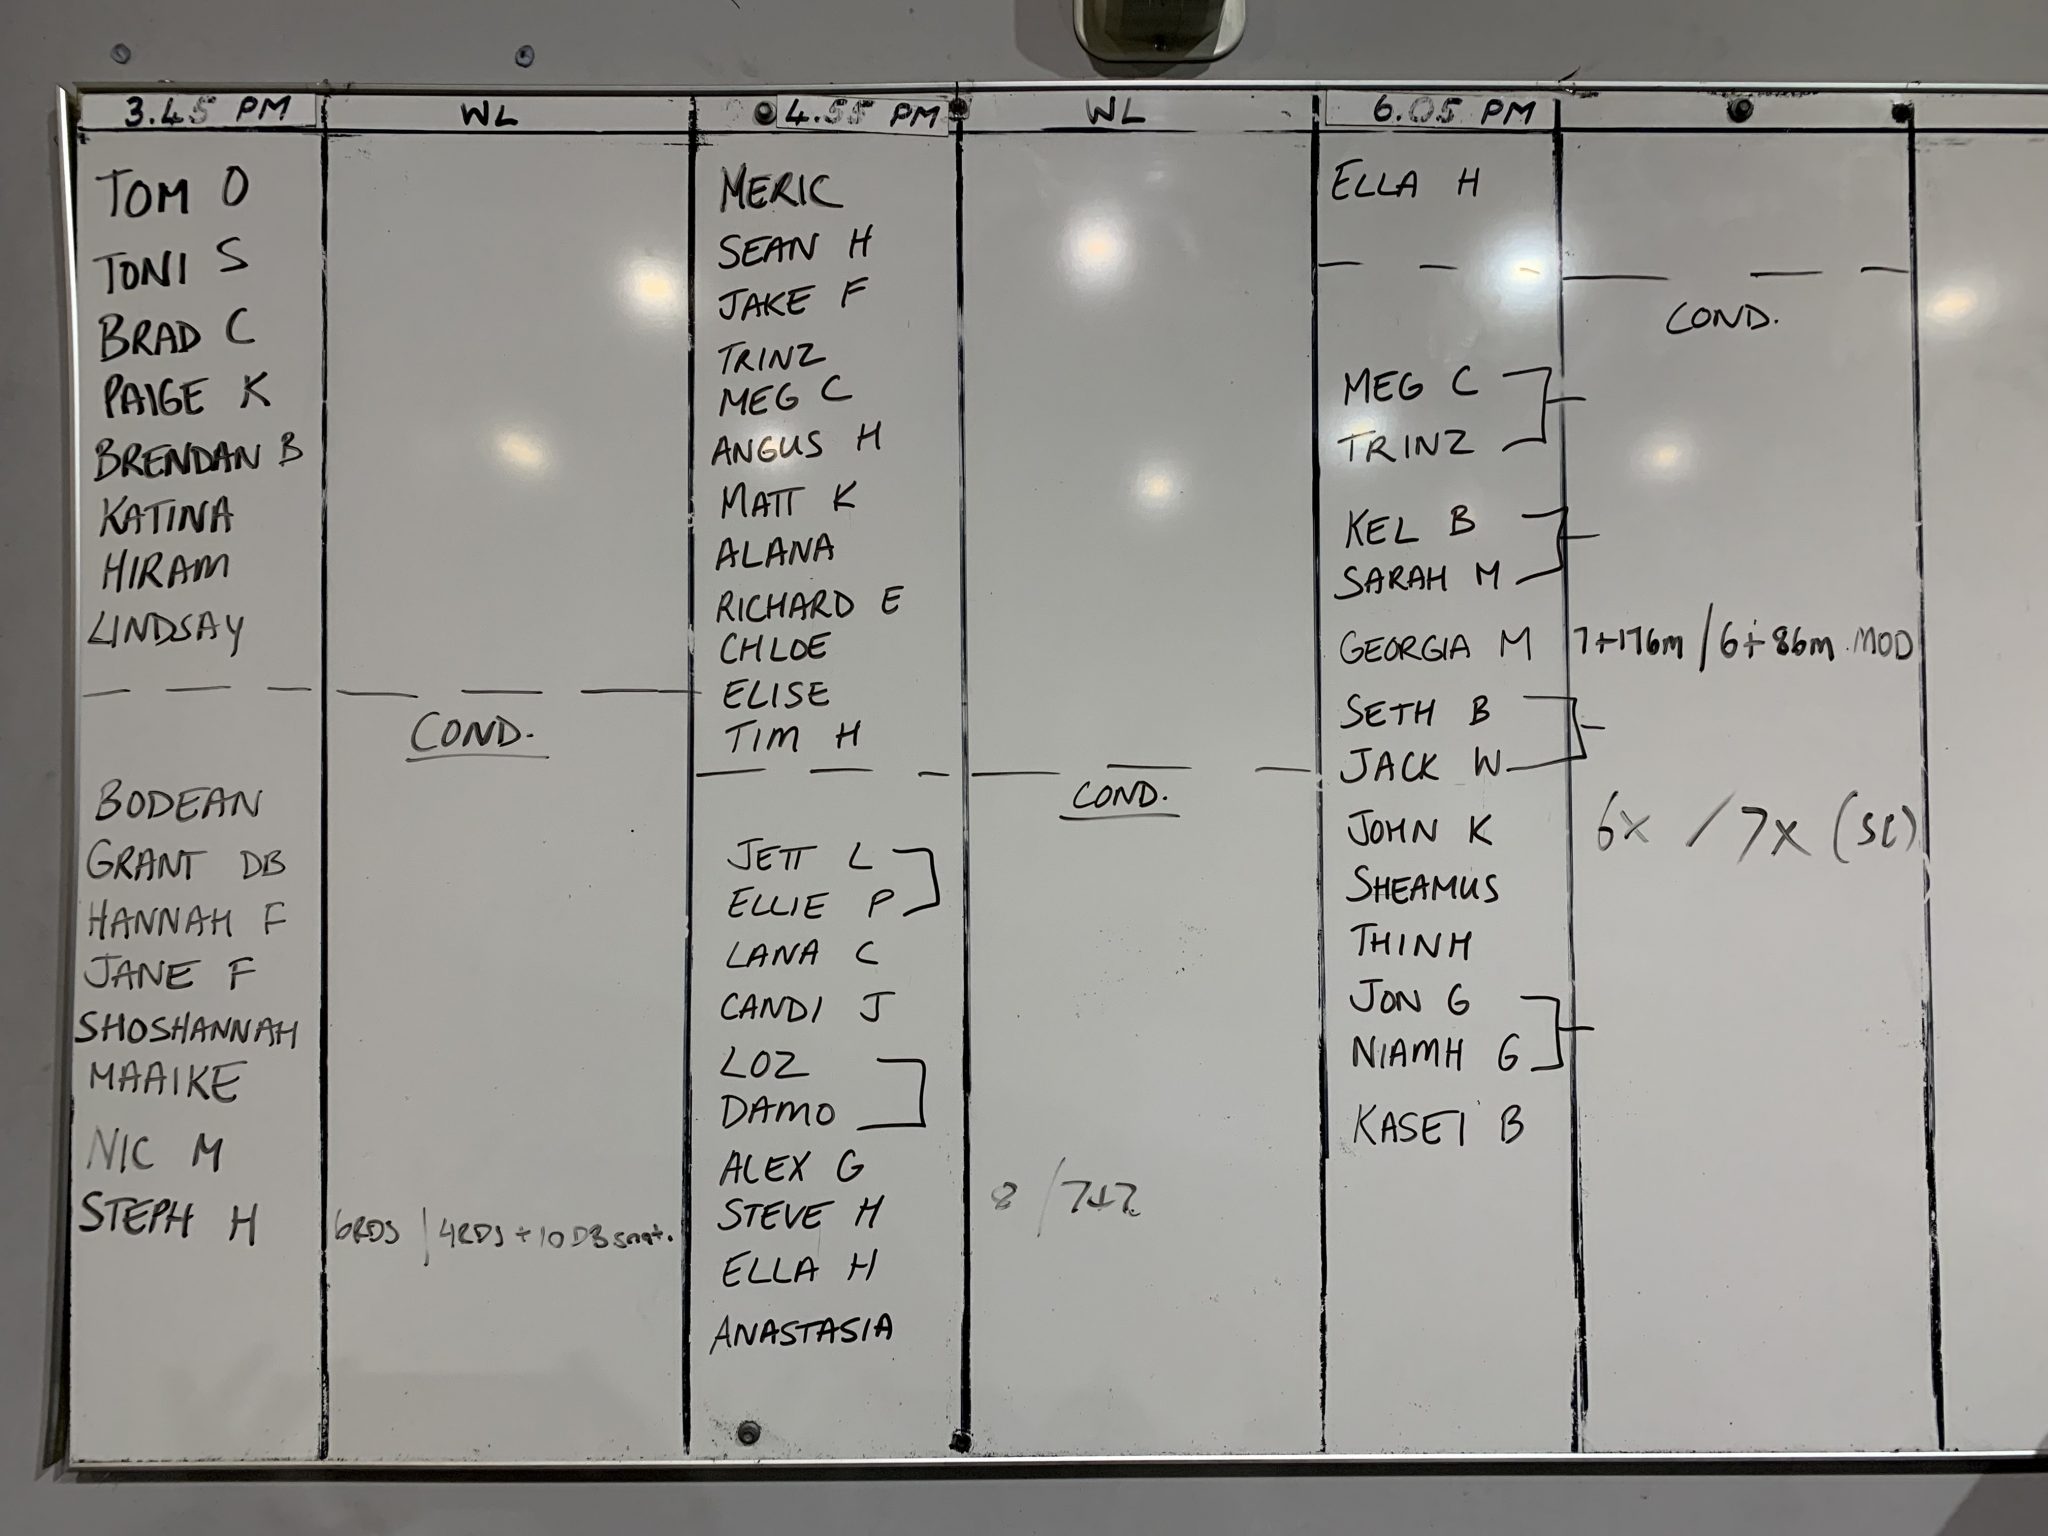 3.45 PM
WL
TOM O
TONI S
BRAD C
PAIGE K
BRENDAN B
KATINA
HIRAM
LINDSAY
COND.
BODEAN
GRANT DB
HANNAH F
JANE F
SHOSHANNAH
MAAIKE
NIC M
STEPH H
6RDS / 4RDS + 10 DB snat.
4.55 PM
WL
MERIC
SEAN H
JAKE F
TRINZ
MEG C
ANGUS H
MATT K
ALANA
RICHARD E
CHLOE
ELISE
TIM H
COND.
JETT L
ELLIE P
LANA C
CANDI J
LOZ
DAMO
ALEX G
STEVE H 8 / 7+2
ELLA H
ANASTASIA
6.05 PM
ELLA H
COND.
MEG C
TRINZ
KEL B
SARAH M
GEORGIA M 7+176m / 6+86m MOD
SETH B
JACK W
JOHN K 6x / 7x (SC)
SHEAMUS
THINH
JON G
NIAMH G
KASEI B